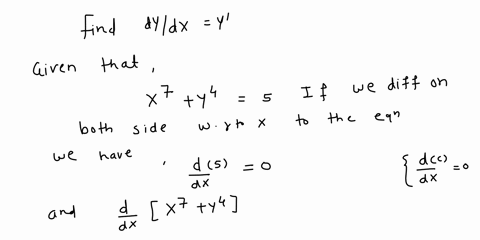 find dy/dx = y'
Given that,
x⁷ + y⁴ = 5 If we diff on
both side w.r to x to the eqn
we have, d/dx (5) = 0 { d(c)/dx = 0
and d/dx [x⁷ + y⁴]